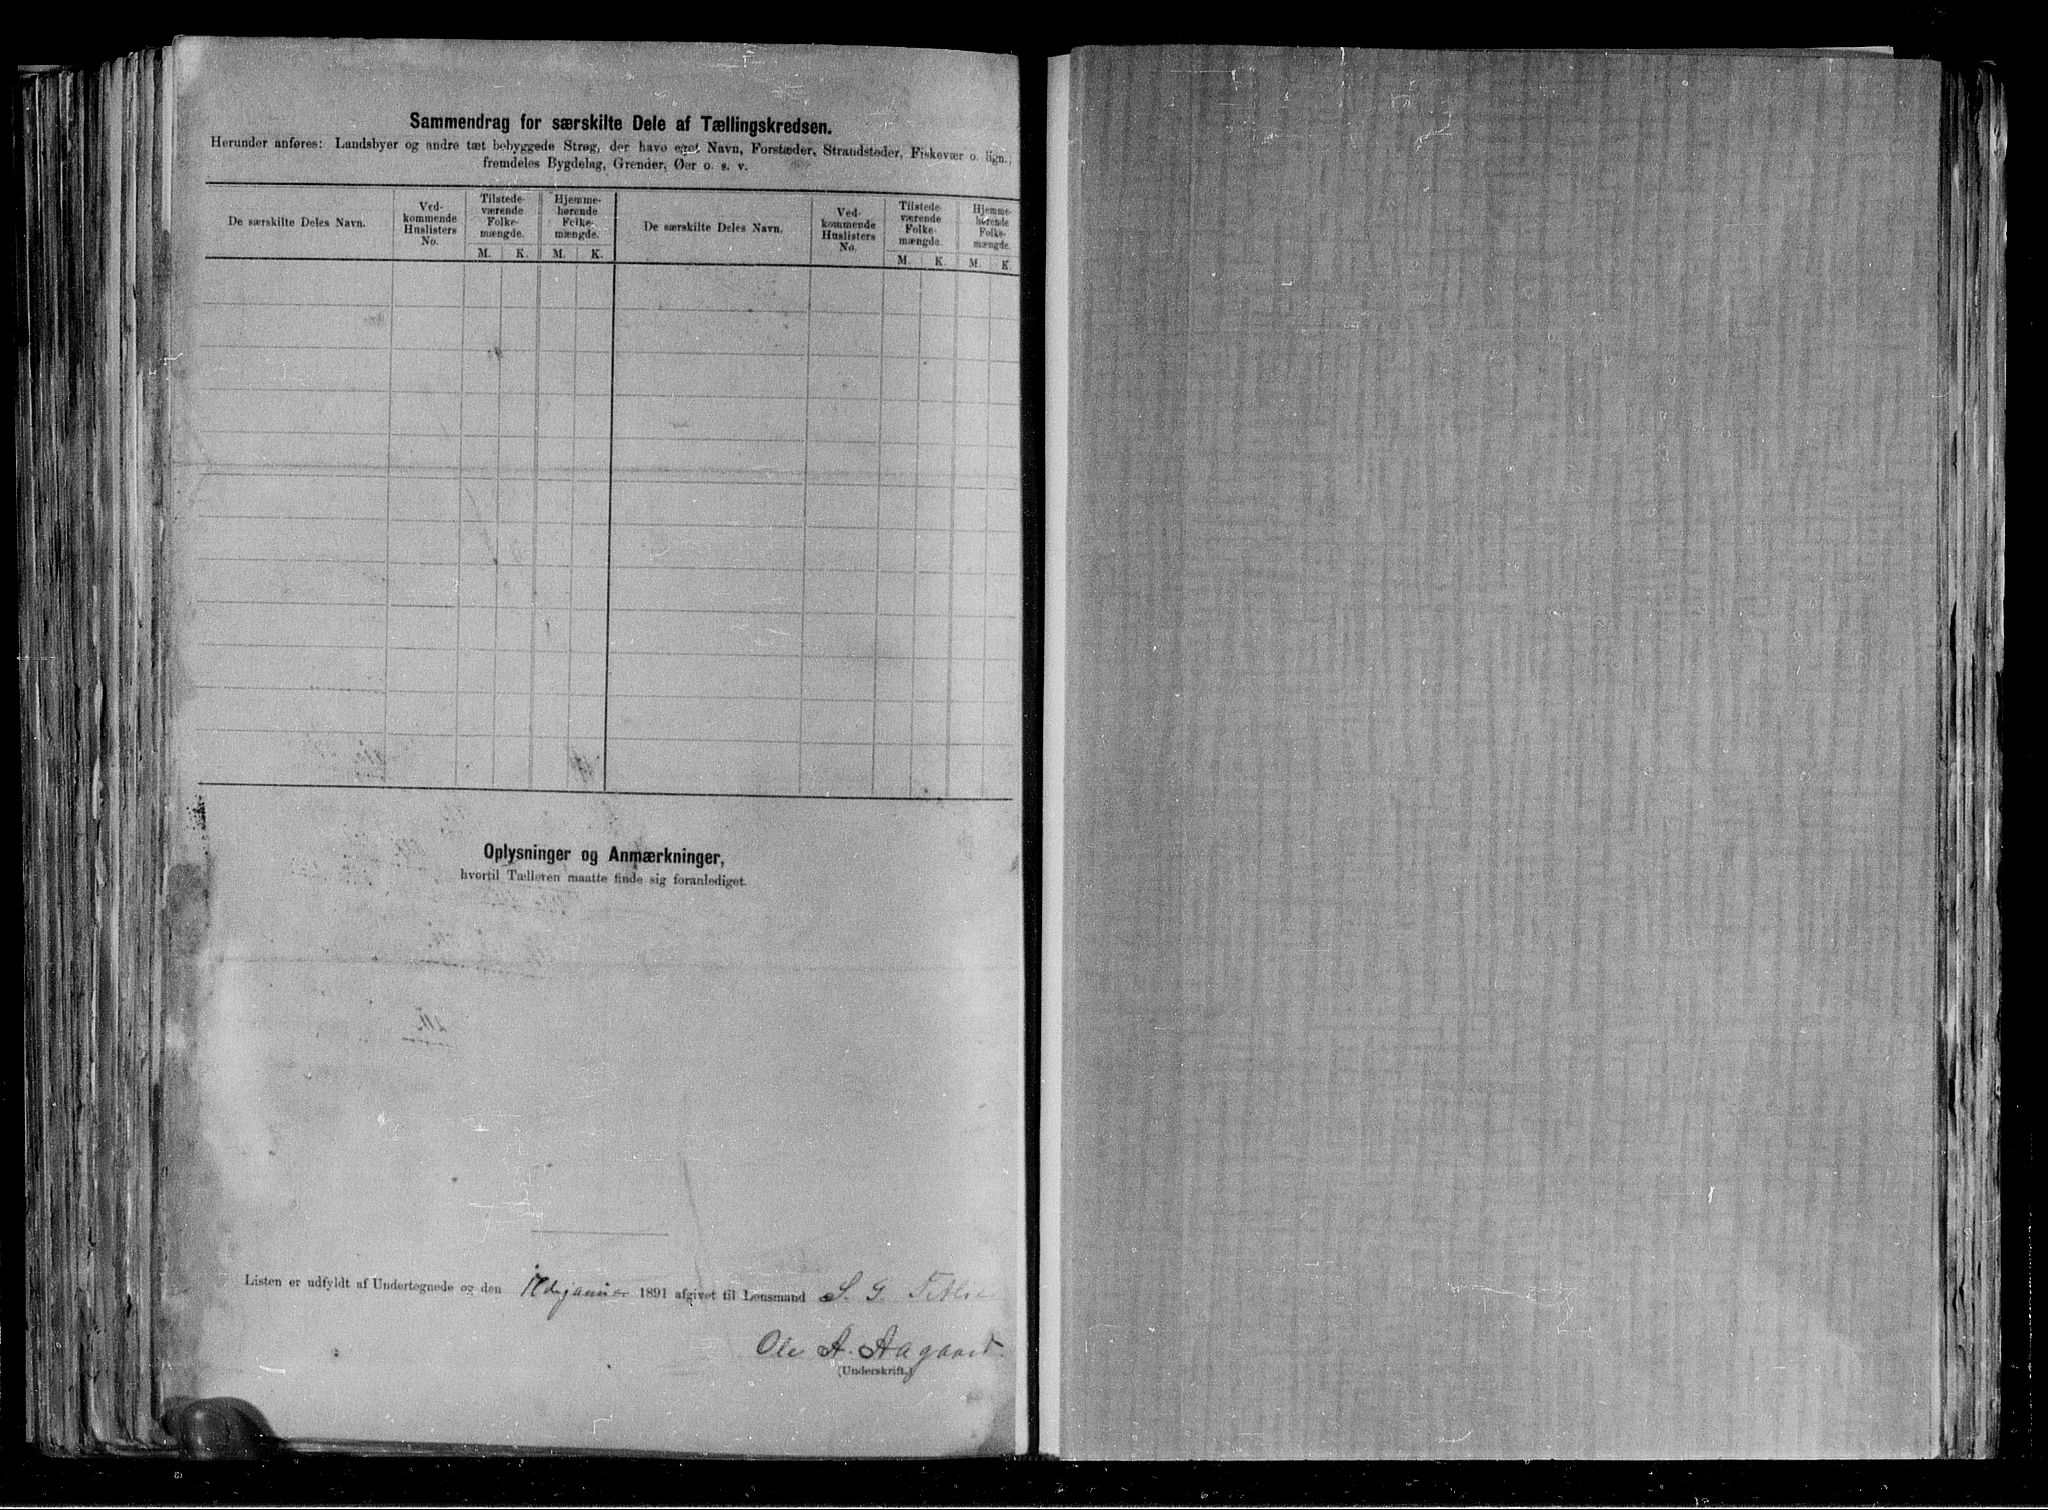 Sammendrag for særskilte Dele af Tællingskredsen.
Herunder anføres: Landsbyer og andre tæt bebyggede Strøg, der have eget Navn, Forstæder, Strandsteder, Fiskevær o. lign.;
fremdeles Bygdelag, Grender, Øer o. s. v.
De særskilte Deles Navn.
Ved-
kommende
Huslisters
No.
Tilstede-
værende
Folke-
mængde.
Hjemme-
hørende
Folke-
mængde.
M. K. M. K.
De særskilte Deles Navn.
Ved-
kommende
Huslisters
No.
Tilstede-
værende
Folke-
mængde.
Hjemme-
hørende
Folke-
mængde.
M. K. M. K.
Oplysninger og Anmærkninger,
hvortil Tælleren maatte finde sig foranlediget.
Listen er udfyldt af Undertegnede og den januar 1891 afgivet til Lensmand S. G.
Ole A. Aagaard.
(Underskrift.)